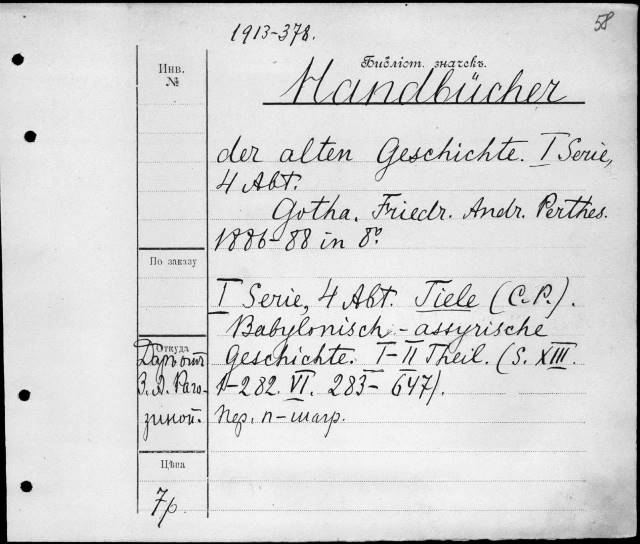 1913-378.
58
Библіот. значекъ.
Инв.
№
Handbücher
der alten Geschichte. I Serie,
4 Abt.
Gotha. Friedr. Andr. Perthes.
1886-88 in 8º.
По заказу
I Serie, 4 Abt. Tiele (C.P.).
Babylonisch-assyrische
Откуда
Даръ отъ
Geschichte. I-II Theil. (S. XIII.
З. А. Раго-
1-282. VI. 283-647).
зиной.
Пер. п-шагр.
Цѣна
7р.